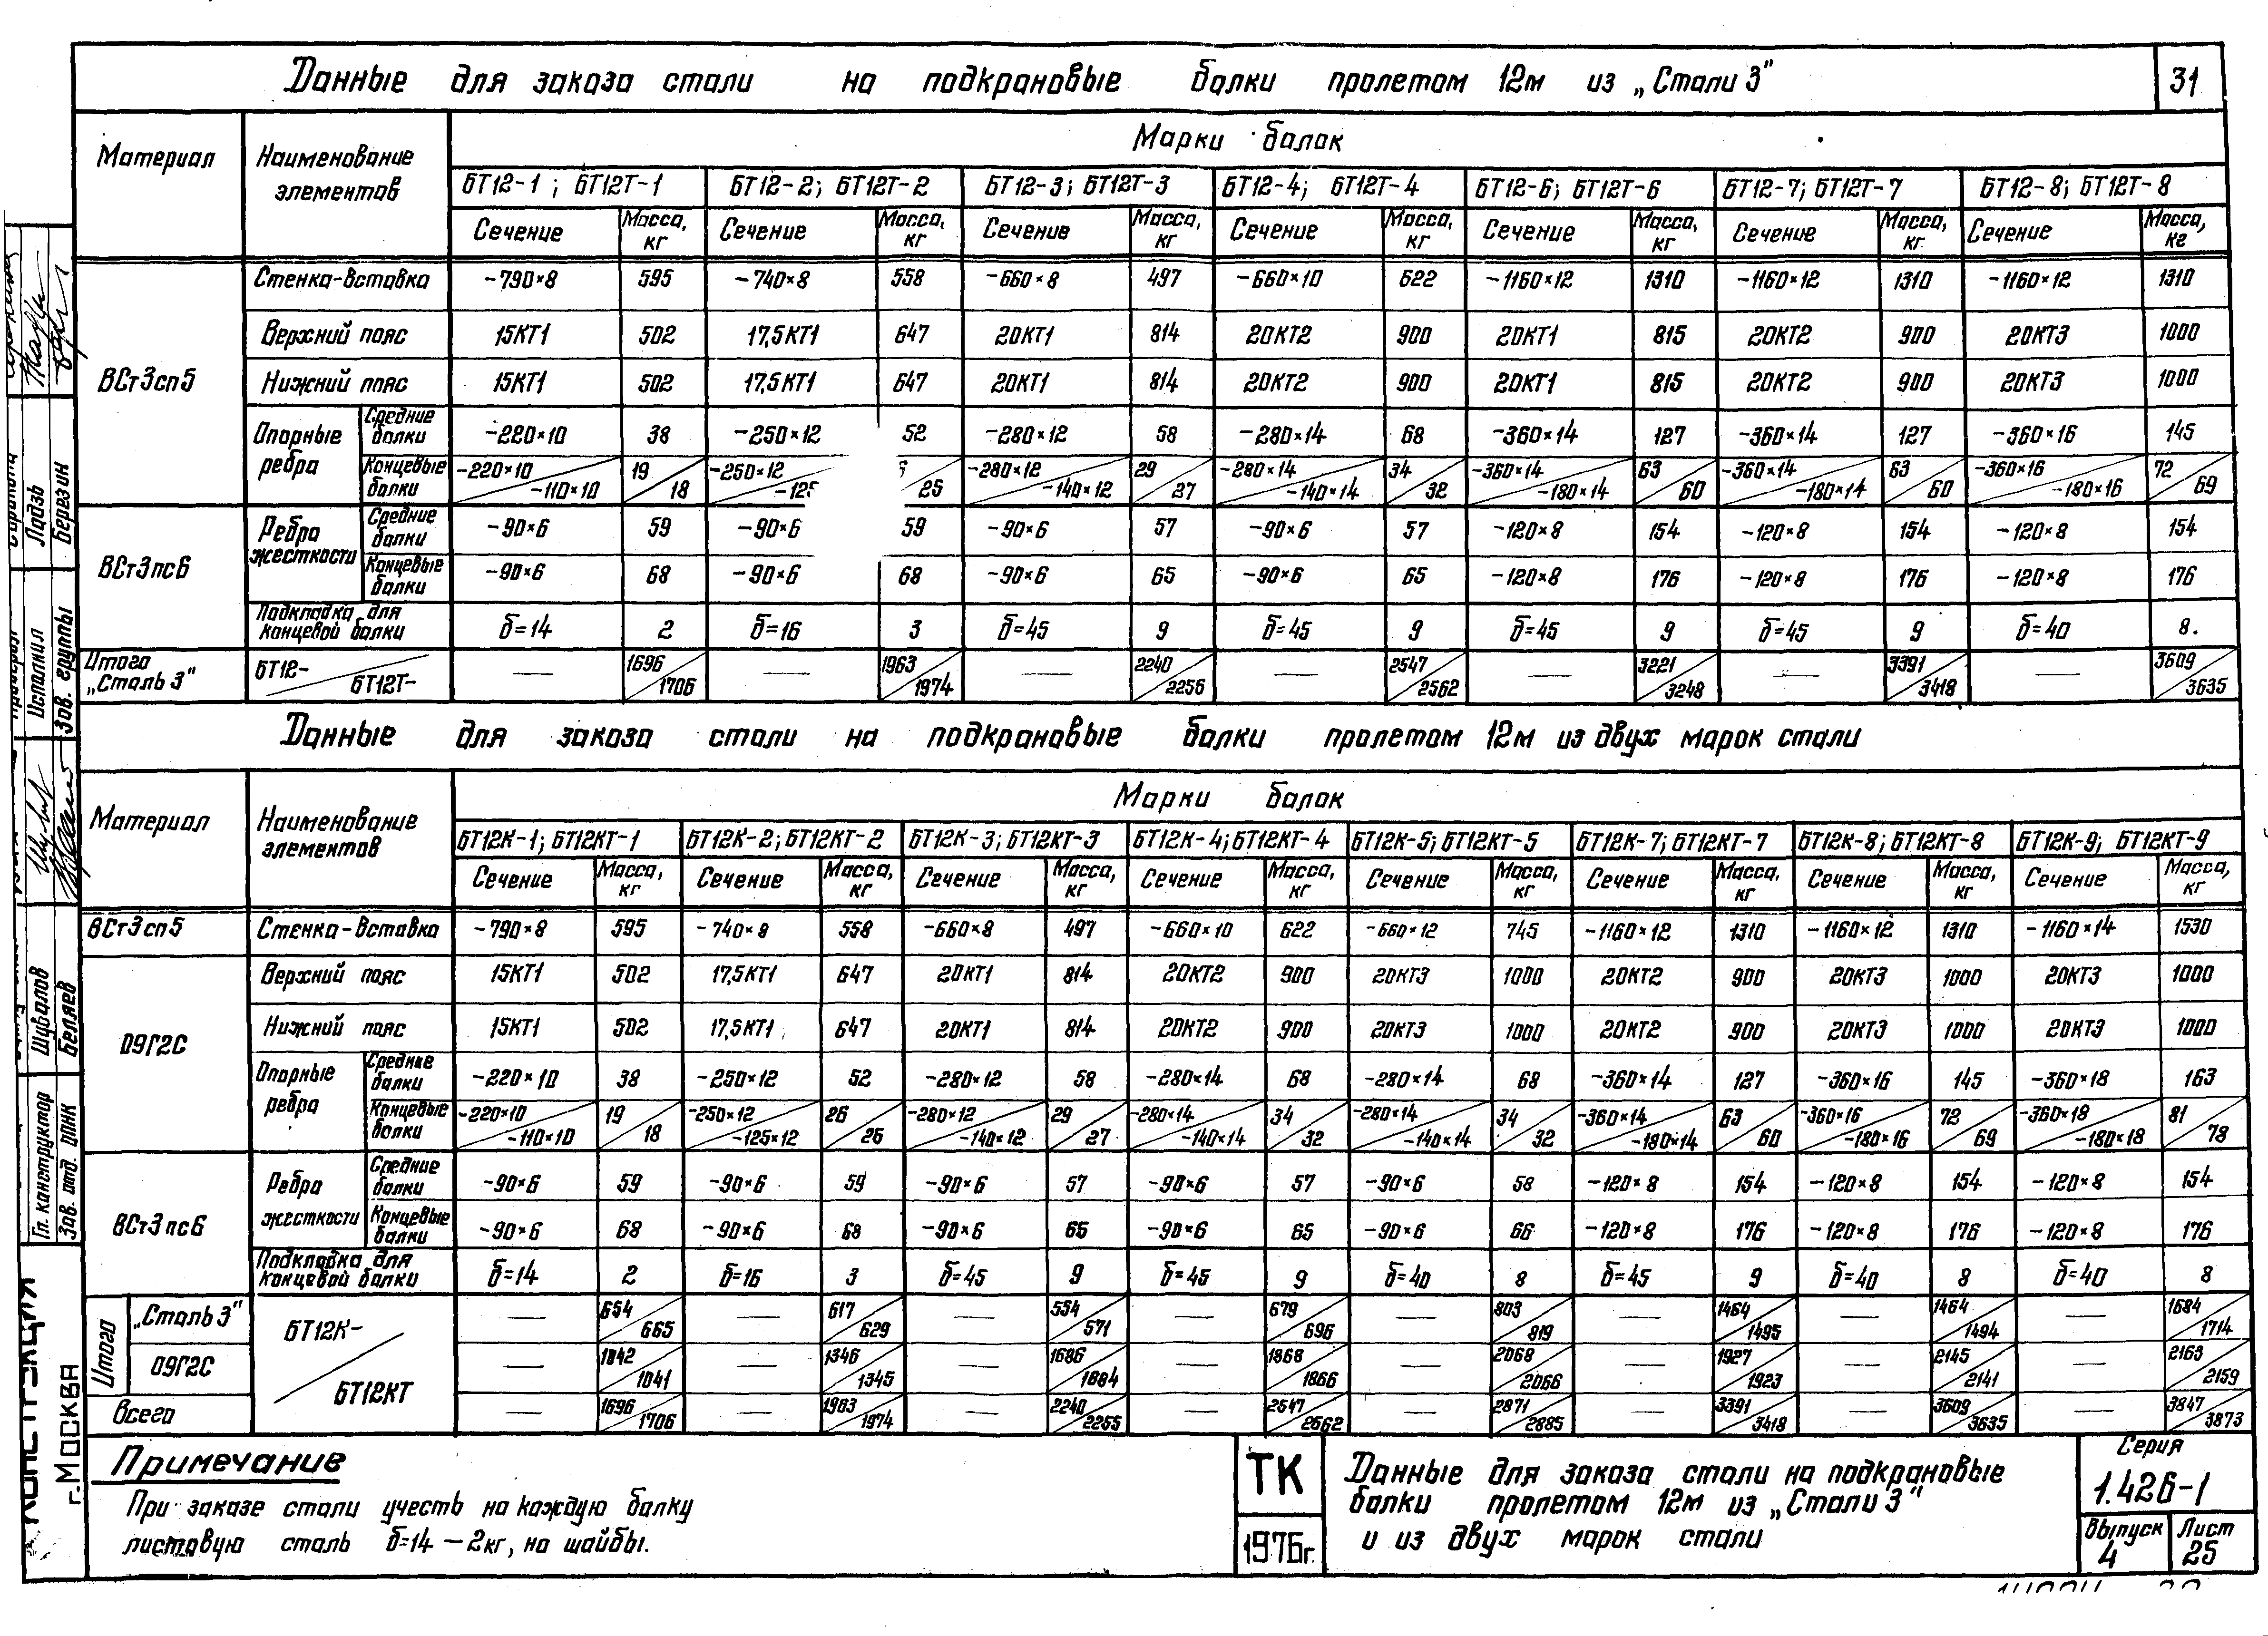 Данные для заказа стали на подкрановые балки пролетом 12м из „Стали 3"
31
Материал
Наименование элементов
Марки балок
БТ12-1; БТ12Т-1 БТ12-2; БТ12Т-2 БТ12-3; БТ12Т-3 БТ12-4; БТ12Т-4 БТ12-6; БТ12Т-6 БТ12-7; БТ12Т-7 БТ12-8; БТ12Т-8
Сечение Масса, кг Сечение Масса, кг Сечение Масса, кг Сечение Масса, кг Сечение Масса, кг Сечение Масса, кг Сечение Масса, кг
ВСт3сп5
Стенка-вставка -790×8 595 -740×8 558 -660×8 497 -660×10 622 -1160×12 1310 -1160×12 1310 -1160×12 1310
Верхний пояс 15КТ1 502 17,5КТ1 647 20КТ1 814 20КТ2 900 20КТ1 815 20КТ2 900 20КТ3 1000
Нижний пояс 15КТ1 502 17,5КТ1 647 20КТ1 814 20КТ2 900 20КТ1 815 20КТ2 900 20КТ3 1000
Опорные ребра Средние балки -220×10 38 -250×12 52 -280×12 58 -280×14 68 -360×14 127 -360×14 127 -360×16 145
Концевые балки -220×10 / -110×10 19 / 18 -250×12 / -125 25 -280×12 / -140×12 29 / 27 -280×14 / -140×14 34 / 32 -360×14 / -180×14 63 / 60 -360×14 / -180×14 63 / 60 -360×16 / -180×16 72 / 69
ВСт3пс6
Ребра жесткости Средние балки -90×6 59 -90×6 59 -90×6 57 -90×6 57 -120×8 154 -120×8 154 -120×8 154
Концевые балки -90×6 68 -90×6 68 -90×6 65 -90×6 65 -120×8 176 -120×8 176 -120×8 176
Подкладка для концевой балки δ=14 2 δ=16 3 δ=45 9 δ=45 9 δ=45 9 δ=45 9 δ=40 8.
Итого „Сталь 3" БТ12- / БТ12Т- — 1696 / 1706 — 1963 / 1974 — 2240 / 2255 — 2547 / 2562 — 3221 / 3248 — 3391 / 3418 — 3609 / 3635
Данные для заказа стали на подкрановые балки пролетом 12м из двух марок стали
Материал
Наименование элементов
Марки балок
БТ12К-1; БТ12КТ-1 БТ12К-2; БТ12КТ-2 БТ12К-3; БТ12КТ-3 БТ12К-4; БТ12КТ-4 БТ12К-5; БТ12КТ-5 БТ12К-7; БТ12КТ-7 БТ12К-8; БТ12КТ-8 БТ12К-9; БТ12КТ-9
Сечение Масса, кг Сечение Масса, кг Сечение Масса, кг Сечение Масса, кг Сечение Масса, кг Сечение Масса, кг Сечение Масса, кг Сечение Масса, кг
ВСт3сп5 Стенка-вставка -790×8 595 -740×8 558 -660×8 497 -660×10 622 -660×12 745 -1160×12 1310 -1160×12 1310 -1160×14 1530
09Г2С
Верхний пояс 15КТ1 502 17,5КТ1 647 20КТ1 814 20КТ2 900 20КТ3 1000 20КТ2 900 20КТ3 1000 20КТ3 1000
Нижний пояс 15КТ1 502 17,5КТ1 647 20КТ1 814 20КТ2 900 20КТ3 1000 20КТ2 900 20КТ3 1000 20КТ3 1000
Опорные ребра Средние балки -220×10 38 -250×12 52 -280×12 58 -280×14 68 -280×14 68 -360×14 127 -360×16 145 -360×18 163
Концевые балки -220×10 / -110×10 19 / 18 -250×12 / -125×12 26 / 25 -280×12 / -140×12 29 / 27 -280×14 / -140×14 34 / 32 -280×14 / -140×14 34 / 32 -360×14 / -180×14 63 / 60 -360×16 / -180×16 72 / 69 -360×18 / -180×18 81 / 78
ВСт3пс6
Ребра жесткости Средние балки -90×6 59 -90×6 59 -90×6 57 -90×6 57 -90×6 58 -120×8 154 -120×8 154 -120×8 154
Концевые балки -90×6 68 -90×6 68 -90×6 65 -90×6 65 -90×6 66 -120×8 176 -120×8 176 -120×8 176
Подкладка для концевой балки δ=14 2 δ=16 3 δ=45 9 δ=45 9 δ=40 8 δ=45 9 δ=40 8 δ=40 8
Итого
БТ12К- / БТ12КТ
„Сталь 3" — 654 / 665 — 617 / 629 — 554 / 571 — 679 / 696 — 803 / 819 — 1464 / 1495 — 1464 / 1494 — 1684 / 1714
09Г2С — 1042 / 1041 — 1346 / 1345 — 1686 / 1684 — 1868 / 1866 — 2068 / 2066 — 1927 / 1923 — 2145 / 2141 — 2163 / 2159
Всего — 1696 / 1706 — 1963 / 1974 — 2240 / 2255 — 2547 / 2562 — 2871 / 2885 — 3391 / 3418 — 3609 / 3635 — 3847 / 3873
Примечание
При заказе стали учесть на каждую балку
листовую сталь δ=14 — 2кг, на шайбы.
ТК
1976г.
Данные для заказа стали на подкрановые
балки пролетом 12м из „Стали 3"
и из двух марок стали
Серия
1.426-1
Выпуск 4
Лист 25
Ладзь
Березин
Исполнил
Зав. группы
Шувалов
Беляев
Гл. конструктор
Зав. отд. ОПНК
г. Москва